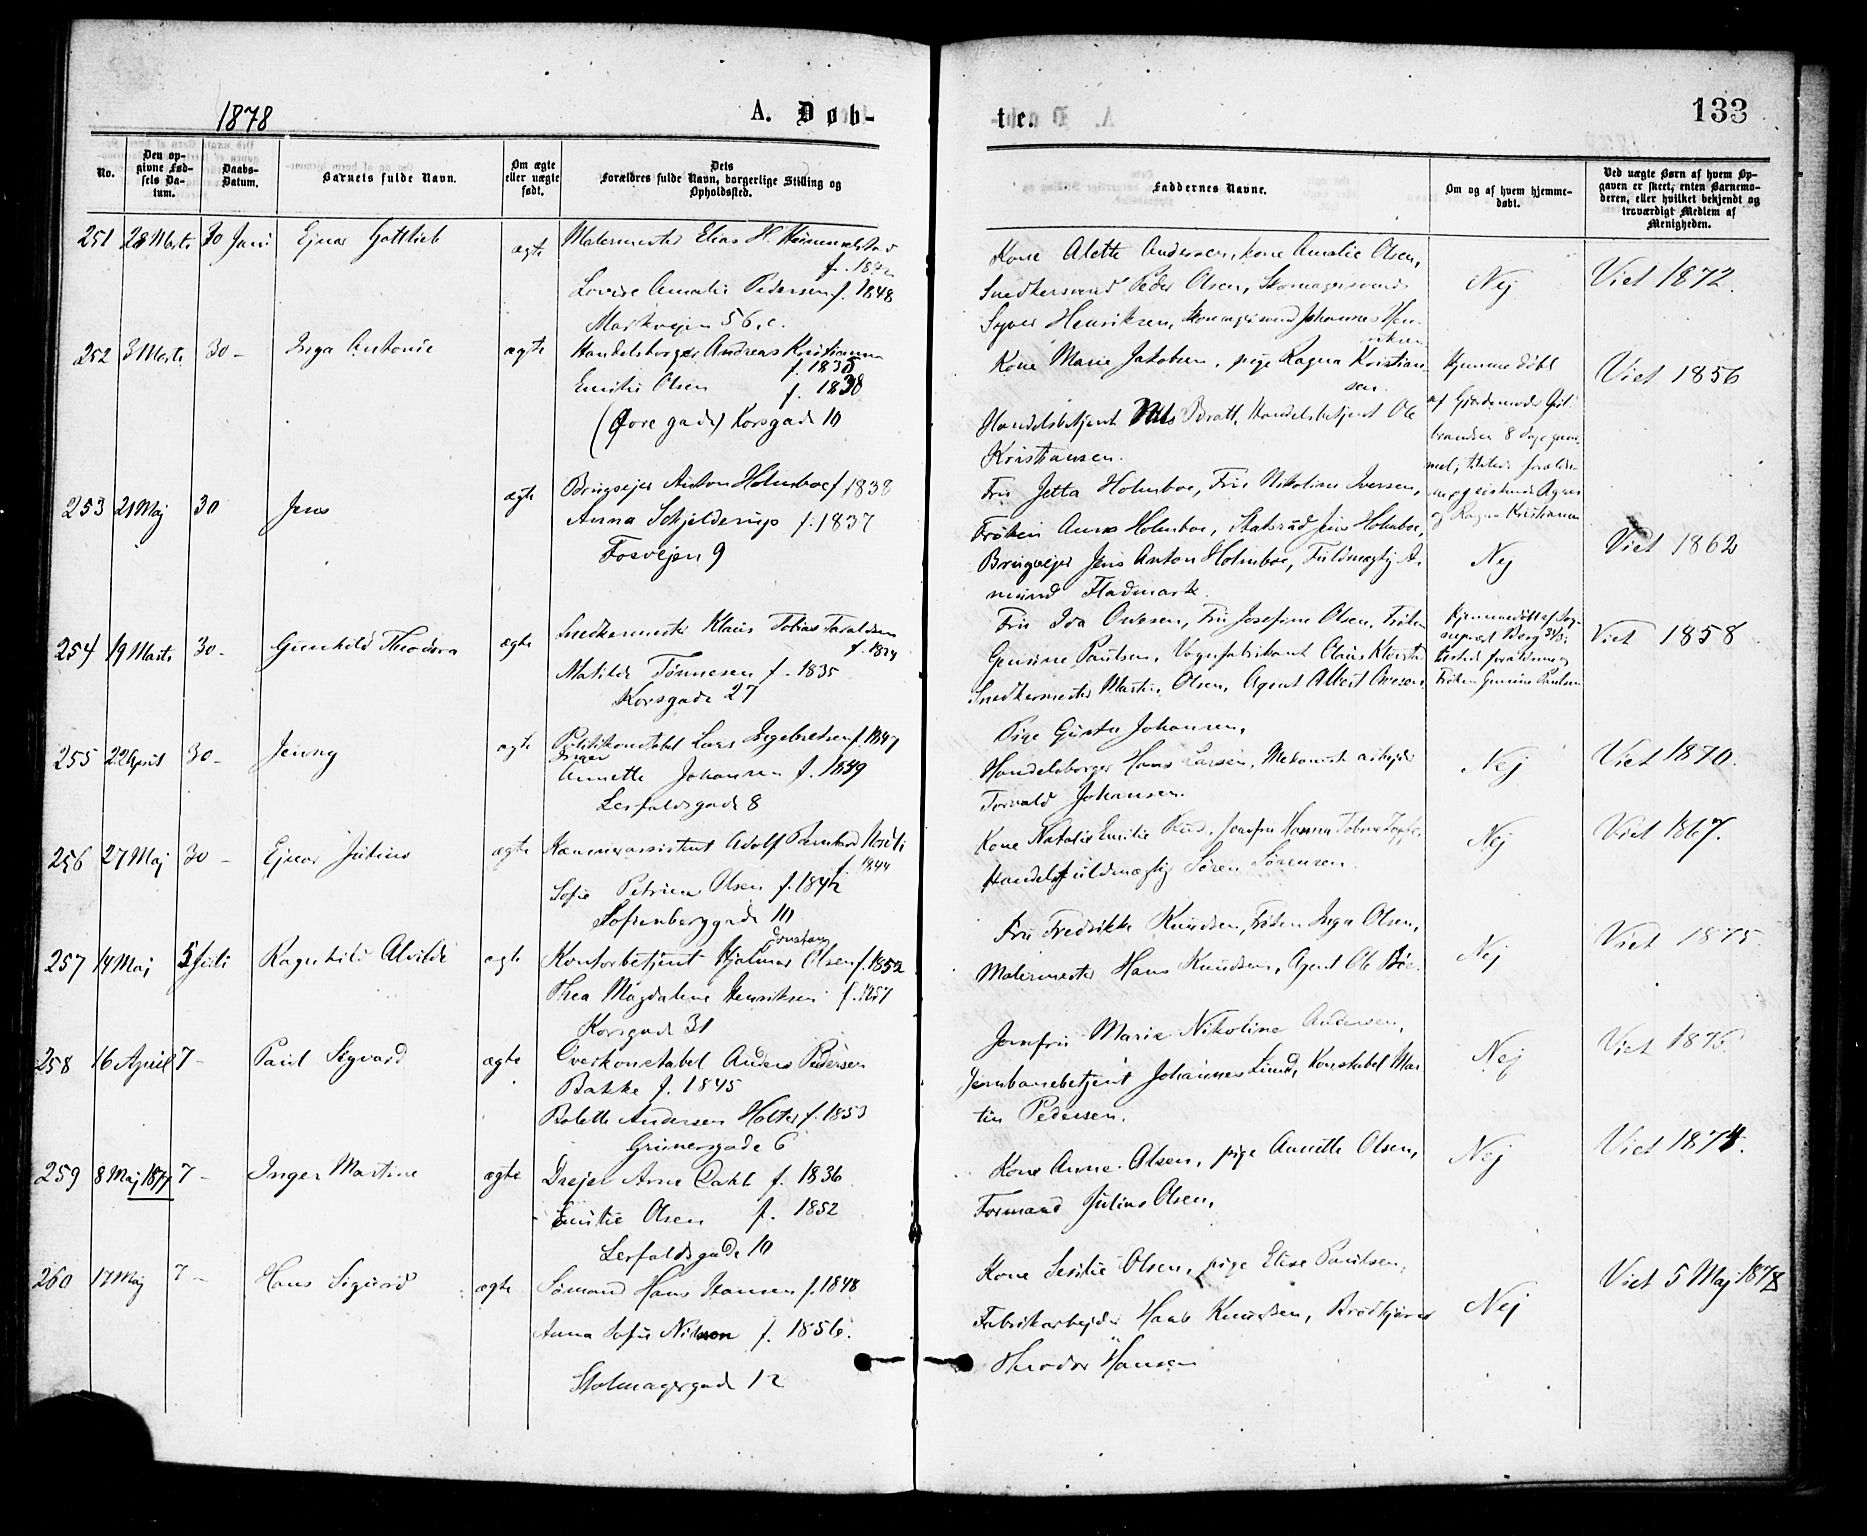 1878
A. Døb-
te.
133
No.
Den op-
givne Fød-
sels Da-
tum.
Daabs-
Datum.
Barnets fulde Navn.
Om ægte
eller uægte
født.
Dets
Forældres fulde Navn, borgerlige Stilling og
Opholdssted.
Faddernes Navne.
Om og af hvem hjemme-
døbt.
Ved uægte Børn af hvem Op-
gaven er skeet, enten Barnemo-
deren, eller hvilket bekjendt og
troværdigt Medlem af
Menigheden.
251 28 Marts 30 Juni Ejnar Gottlieb ægte Malermester Elias H. Himmelstad
f. 1842
Lovise Amalie Pedersen f. 1848
Markvejen 56.c.
Kone Alette Andersen, kone Amalie Olsen,
Snedkersvend Peder Olsen, Skomagersvend
Syver Henriksen, Skomagersvend Johannes Hen-
riksen
Nej
Viet 1872.
252 3 Marts 30 - Inga Antonie ægte Handelsborger Andreas Kristiansen
f. 1835
Emilie Olsen f. 1838
(Øvre gade) Korsgade 10
Kone Marie Jakobsen, pige Ragna Kristian-
sen.
Handelsbetjent Nils Bratt, Handelsbetjent Ole
Kristiansen.
Hjemmedøbt
af Gjordemoder Gul-
brandsen 8 dage gam-
mel, tilstede forældre-
ne og søstrene Agnes
og Ragna Kristiansen
Viet 1856
253 21 Maj 30 Jens ægte Brugsejer Anton Holmboe f. 1838
Anna Schjelderup f. 1837
Fosvejen 9
Fru Jetta Holmboe, Fru Nikoline Iversen,
Frøken Anna Holmboe, Statsråd Jens Holmboe,
Brugsejer Jens Anton Holmboe, Fuldmægtig A-
mund Fladmark.
Nej
Viet 1862
254 19 Marts 30 - Gunhild Theodora ægte Snedkermester Klaus Tobias Taraldsen
f. 1834
Matilde Tønnesen f. 1835
Korsgade 27
Fru Ida Ovesen, Fru Josefine Olsen, Frøken
Gemine Paulsen, Vognfabrikant Claus
Snedkermester Martin Olsen, Agent Albert Ovesen
Hjemmedøbt af Sog-
nepræst Berg 31/3;
tilstede forældrene og
Frøken Gemine Paulsen
Viet 1858
255 22 April 30 - Jenny ægte Politikonstabel Lars Ingebretsen f. 1847
Annette Johansen f. 1849
Lerfaldsgade 8
Pige Gusta Johansen,
Handelsborger Hans Larsen, Mekanisk arbejder
Torvald Johansen.
Nej
Viet 1870.
256 27 Maj 30 - Ejnar Julius ægte Kæmnerassistent Adolf
f. 1844
Sofie Petrine Olsen f. 1842
Sofienberggade 10
Kone Natalie Emilie Rud, Jomfru Hanna
Handelsfuldmægtig Søren Sørensen.
Nej
Viet 1867.
257 14 Maj 5 Juli Ragnhild Alvilde ægte Kontorbetjent Hjalmar Jonatan Olsen f. 1852
Thea Magdalene Henriksen f. 1857
Korsgade 31
Fru Fredrikke Knudsen, Frøken Inga Olsen,
Malermester Hans Knudsen, Agent Ole Bøe.
Nej
Viet 1875
258 16 April 7 - Paul Sigvard ægte Overkonstabel Anders Pedersen
Bakke f. 1845
Bolette Andersen Holter f. 1853
Grünersgade 6
Jomfru Marie Nikoline Andersen,
Jernbanebetjent Johannes Lund, Konstabel Mar-
tin Pedersen.
Nej
Viet 1876.
259 8 Maj 1877 7 - Inger Martine ægte Drejer Arne Dahl f. 1836
Emilie Olsen f. 1852
Lerfaldsgade 10
Kone Anne Olsen, pige Annette Olsen,
Formand Julius Olsen.
Nej
Viet 1874.
260 17 Maj 7 - Hans Sigurd ægte Sømand Hans Hansen f. 1848
Anna Sofie Nilsen f. 1856.
Stolmagergade 12
Kone Sesilie Olsen, pige Elise Paulsen,
Fabrikarbejder Hans Knudsen, Brødkjører
Theodor Hansen
Nej
Viet 5 Maj 1878